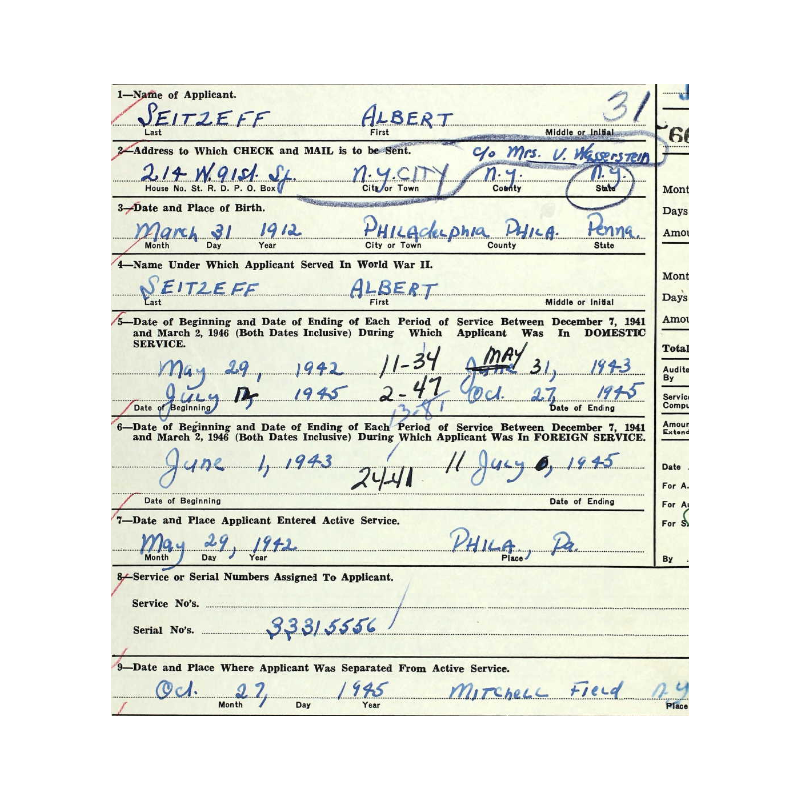 1—Name of Applicant.
31
SEITZEFF ALBERT
Last First Middle or Initial
2—Address to Which CHECK and MAIL is to be Sent.
c/o Mrs. V. Wasserstein
214 W. 91st. St. N.Y. CITY N.Y. N.Y.
House No. St. R. D. P. O. Box City or Town County State
3—Date and Place of Birth.
March 31 1912 PHILAdelphia PHILA. Penna.
Month Day Year City or Town County State
4—Name Under Which Applicant Served In World War II.
SEITZEFF ALBERT
Last First Middle or Initial
5—Date of Beginning and Date of Ending of Each Period of Service Between December 7, 1941
and March 2, 1946 (Both Dates Inclusive) During Which Applicant Was In DOMESTIC
SERVICE.
May 29, 1942 11-34 MAY 31, 1943
July 12, 1945 2-47 Oct. 27, 1945
13-81
Date of Beginning Date of Ending
6—Date of Beginning and Date of Ending of Each Period of Service Between December 7, 1941
and March 2, 1946 (Both Dates Inclusive) During Which Applicant Was In FOREIGN SERVICE.
June 1, 1943 24-41 11 July 1945
Date of Beginning Date of Ending
7—Date and Place Applicant Entered Active Service.
May 29, 1942 PHILA., Pa.
Month Day Year Place
8—Service or Serial Numbers Assigned To Applicant.
Service No's.
Serial No's. 33315556
9—Date and Place Where Applicant Was Separated From Active Service.
Oct. 27, 1945 Mitchell Field N.Y
Month Day Year Place
66
Mont
Days
Amou
Mont
Days
Amou
Total
Audite
By
Servic
Compu
Amoun
Extend
Date
For A.
For A
For S
By